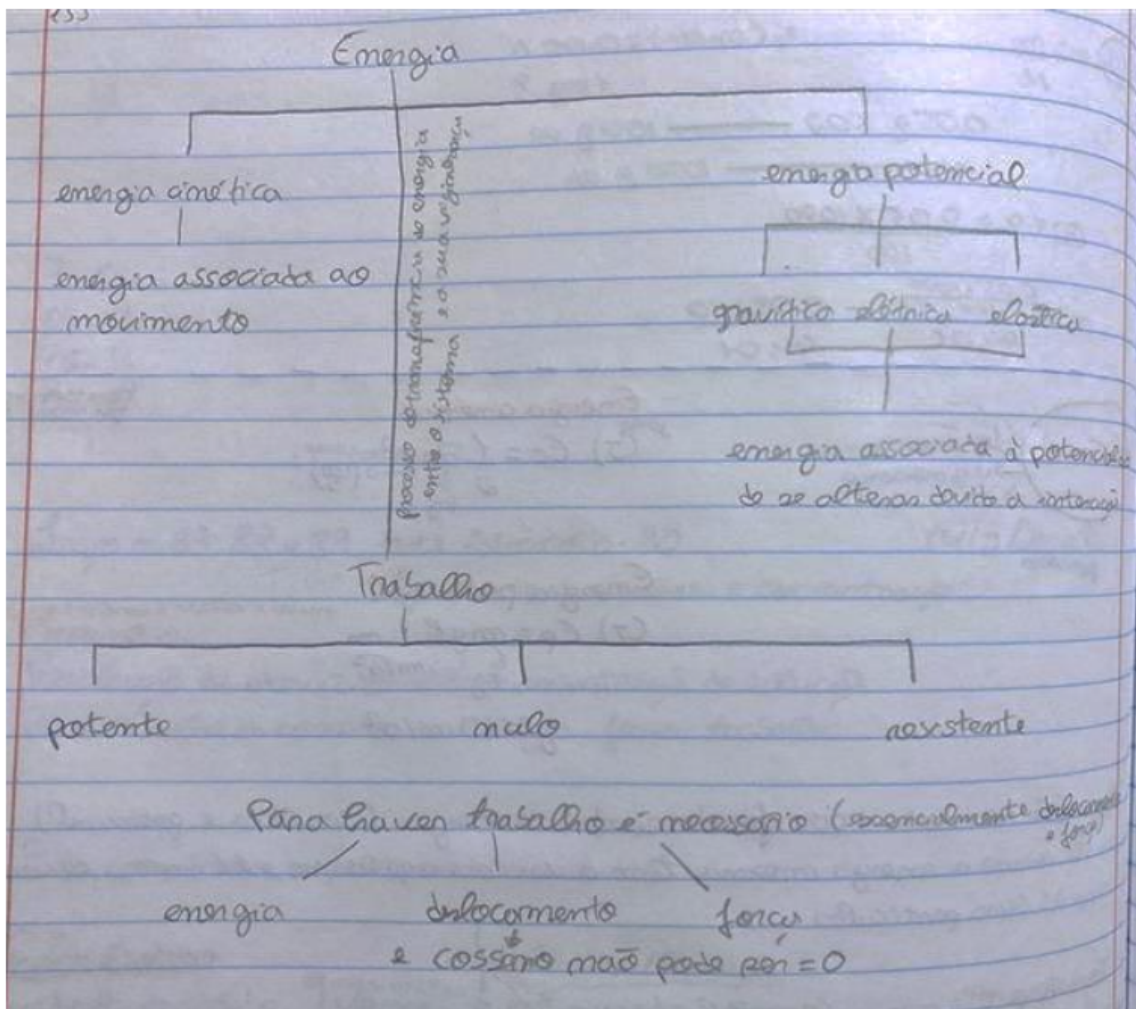 Energia
energia cinética
energia potencial
energia associada ao
movimento
processo de transferência de energia
entre o sistema e a sua vizinhança
gravítica elétrica elástica
energia associada à potenciali
do se alterar devido à interaçã
Trabalho
potente nulo resistente
Para haver trabalho é necessário (essencialmente deslocamento
e força)
energia deslocamento força
e cosseno não pode ser = 0